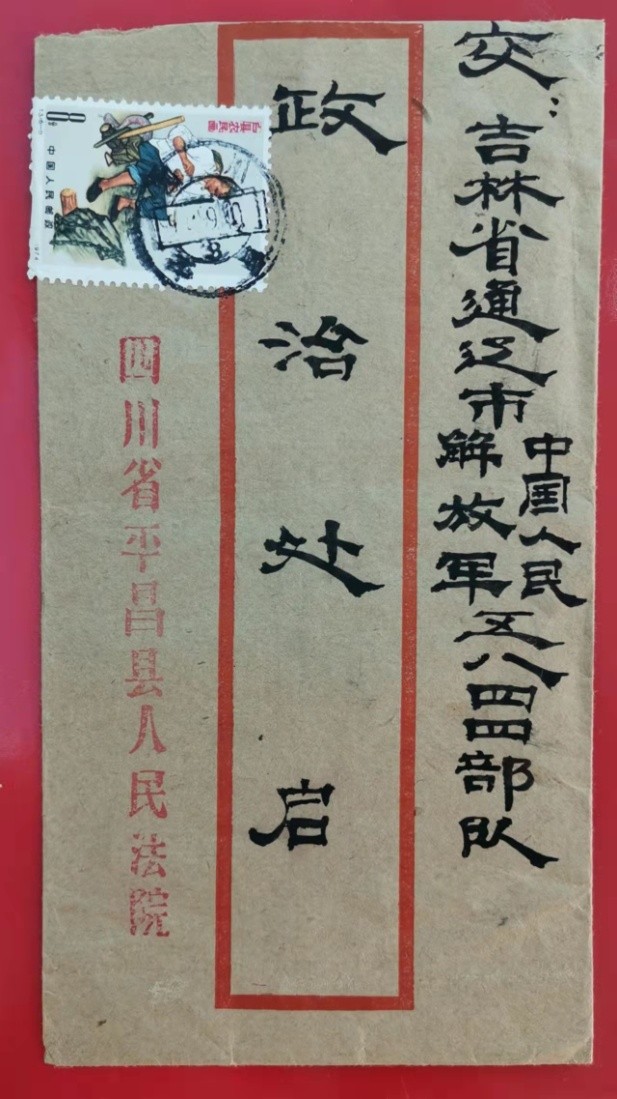 交：吉林省通辽市中国人民解放军五八四四部队
政治处启
四川省平昌县人民法院
户县农民画
8分
中国人民邮政